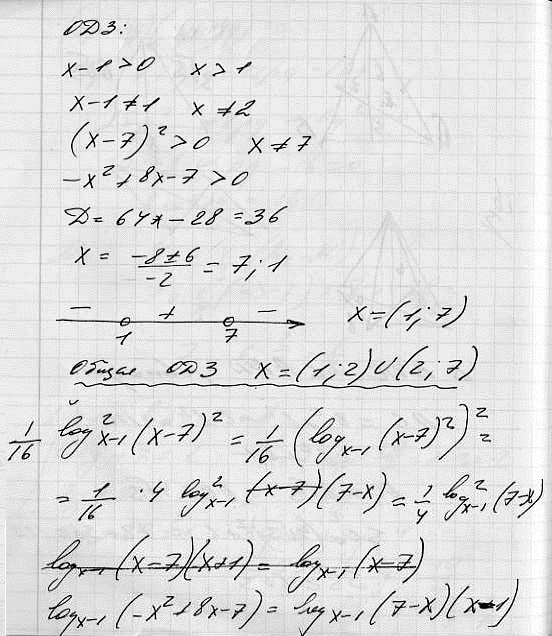 ОДЗ:
x-1>0 x>1
x-1≠1 x≠2
(x-7)²>0 x≠7
-x²+8x-7>0
D=64-28=36
x = (-8±6)/(-2) = 7; 1
- + -
1 7 x=(1; 7)
Общая ОДЗ x=(1; 2)∪(2; 7)
1/16 log²ₓ₋₁(x-7)² = 1/16 (logₓ₋₁(x-7)²)² =
= 1/16 · 4 log²ₓ₋₁ (x-7) (7-x) = 1/4 log²ₓ₋₁(7-x)
logₓ₋₁(x-7)(x+1) = logₓ₋₁(x-7)
logₓ₋₁(-x²+8x-7) = logₓ₋₁(7-x)(x-1)